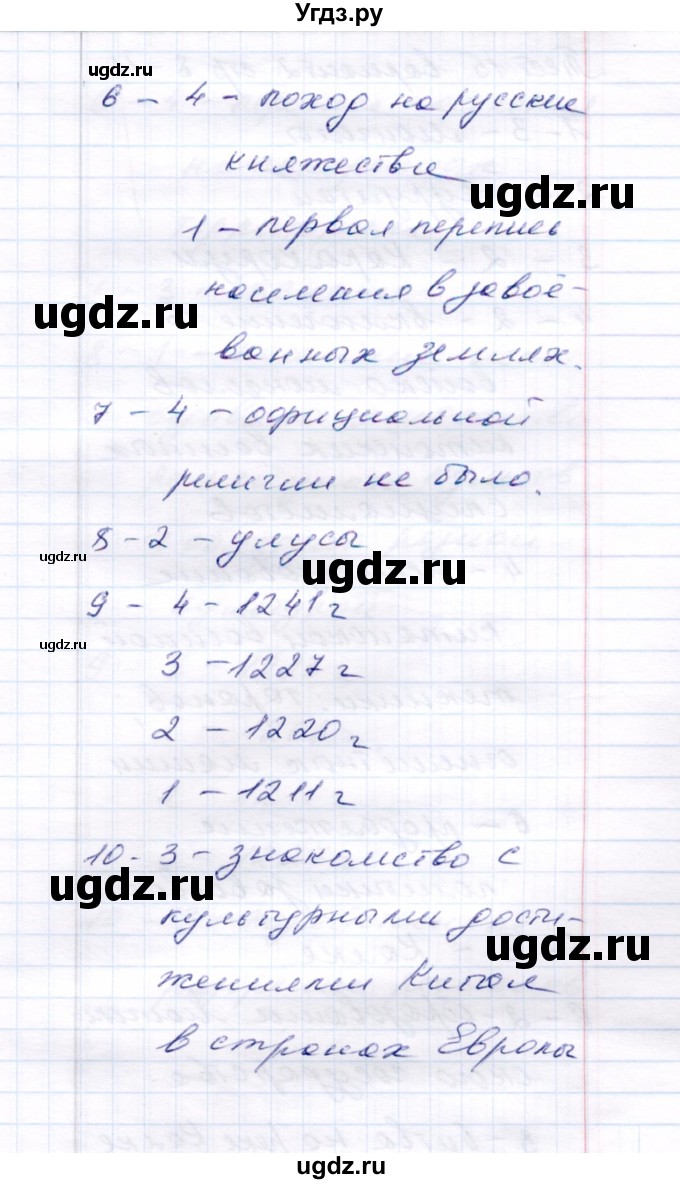 Угдз.ру
ugdz.ru
6 - 4 - поход на русские
княжества
ugdz.ru
1 - первая перепись
населения в завоё-
ugdz.ru
ванных землях.
7 - 4 - официальной
религии не было.
8 - 2 - улусы
ugdz.ru
ugdz.ru
9 - 4 - 1241 г
ugdz.ru
3 - 1227 г
2 - 1220 г
1 - 1211 г
10 - 3 - знакомство с
ugdz.ru
культурными дости-
ugdz.ru
жениями Китая
в странах Европы
ugdz.ru